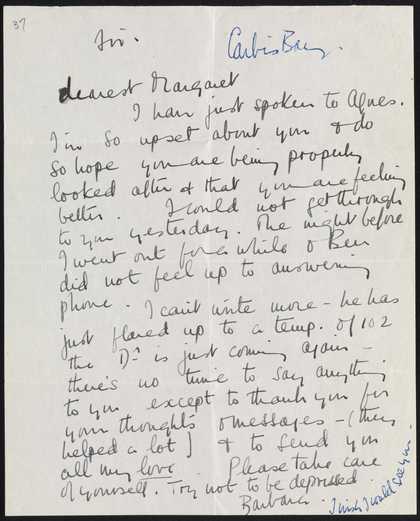 37
Fri.
Carbis Bay.
dearest Margaret
I have just spoken to Agnes.
I'm so upset about you & do
so hope you are being properly
looked after & that you are feeling
better. I could not get through
to you yesterday. The night before
I went out for a while & Ben
did not feel up to answering
phone. I can't write more – he has
just flared up to a temp. of 102
the Dr is just coming again –
there's no time to say anything
to you except to thank you for
your thoughts & messages – (they
helped a lot) & to send you
all my love. Please take care
of yourself. Try not to be depressed.
Barbara.
I wish I could see you.